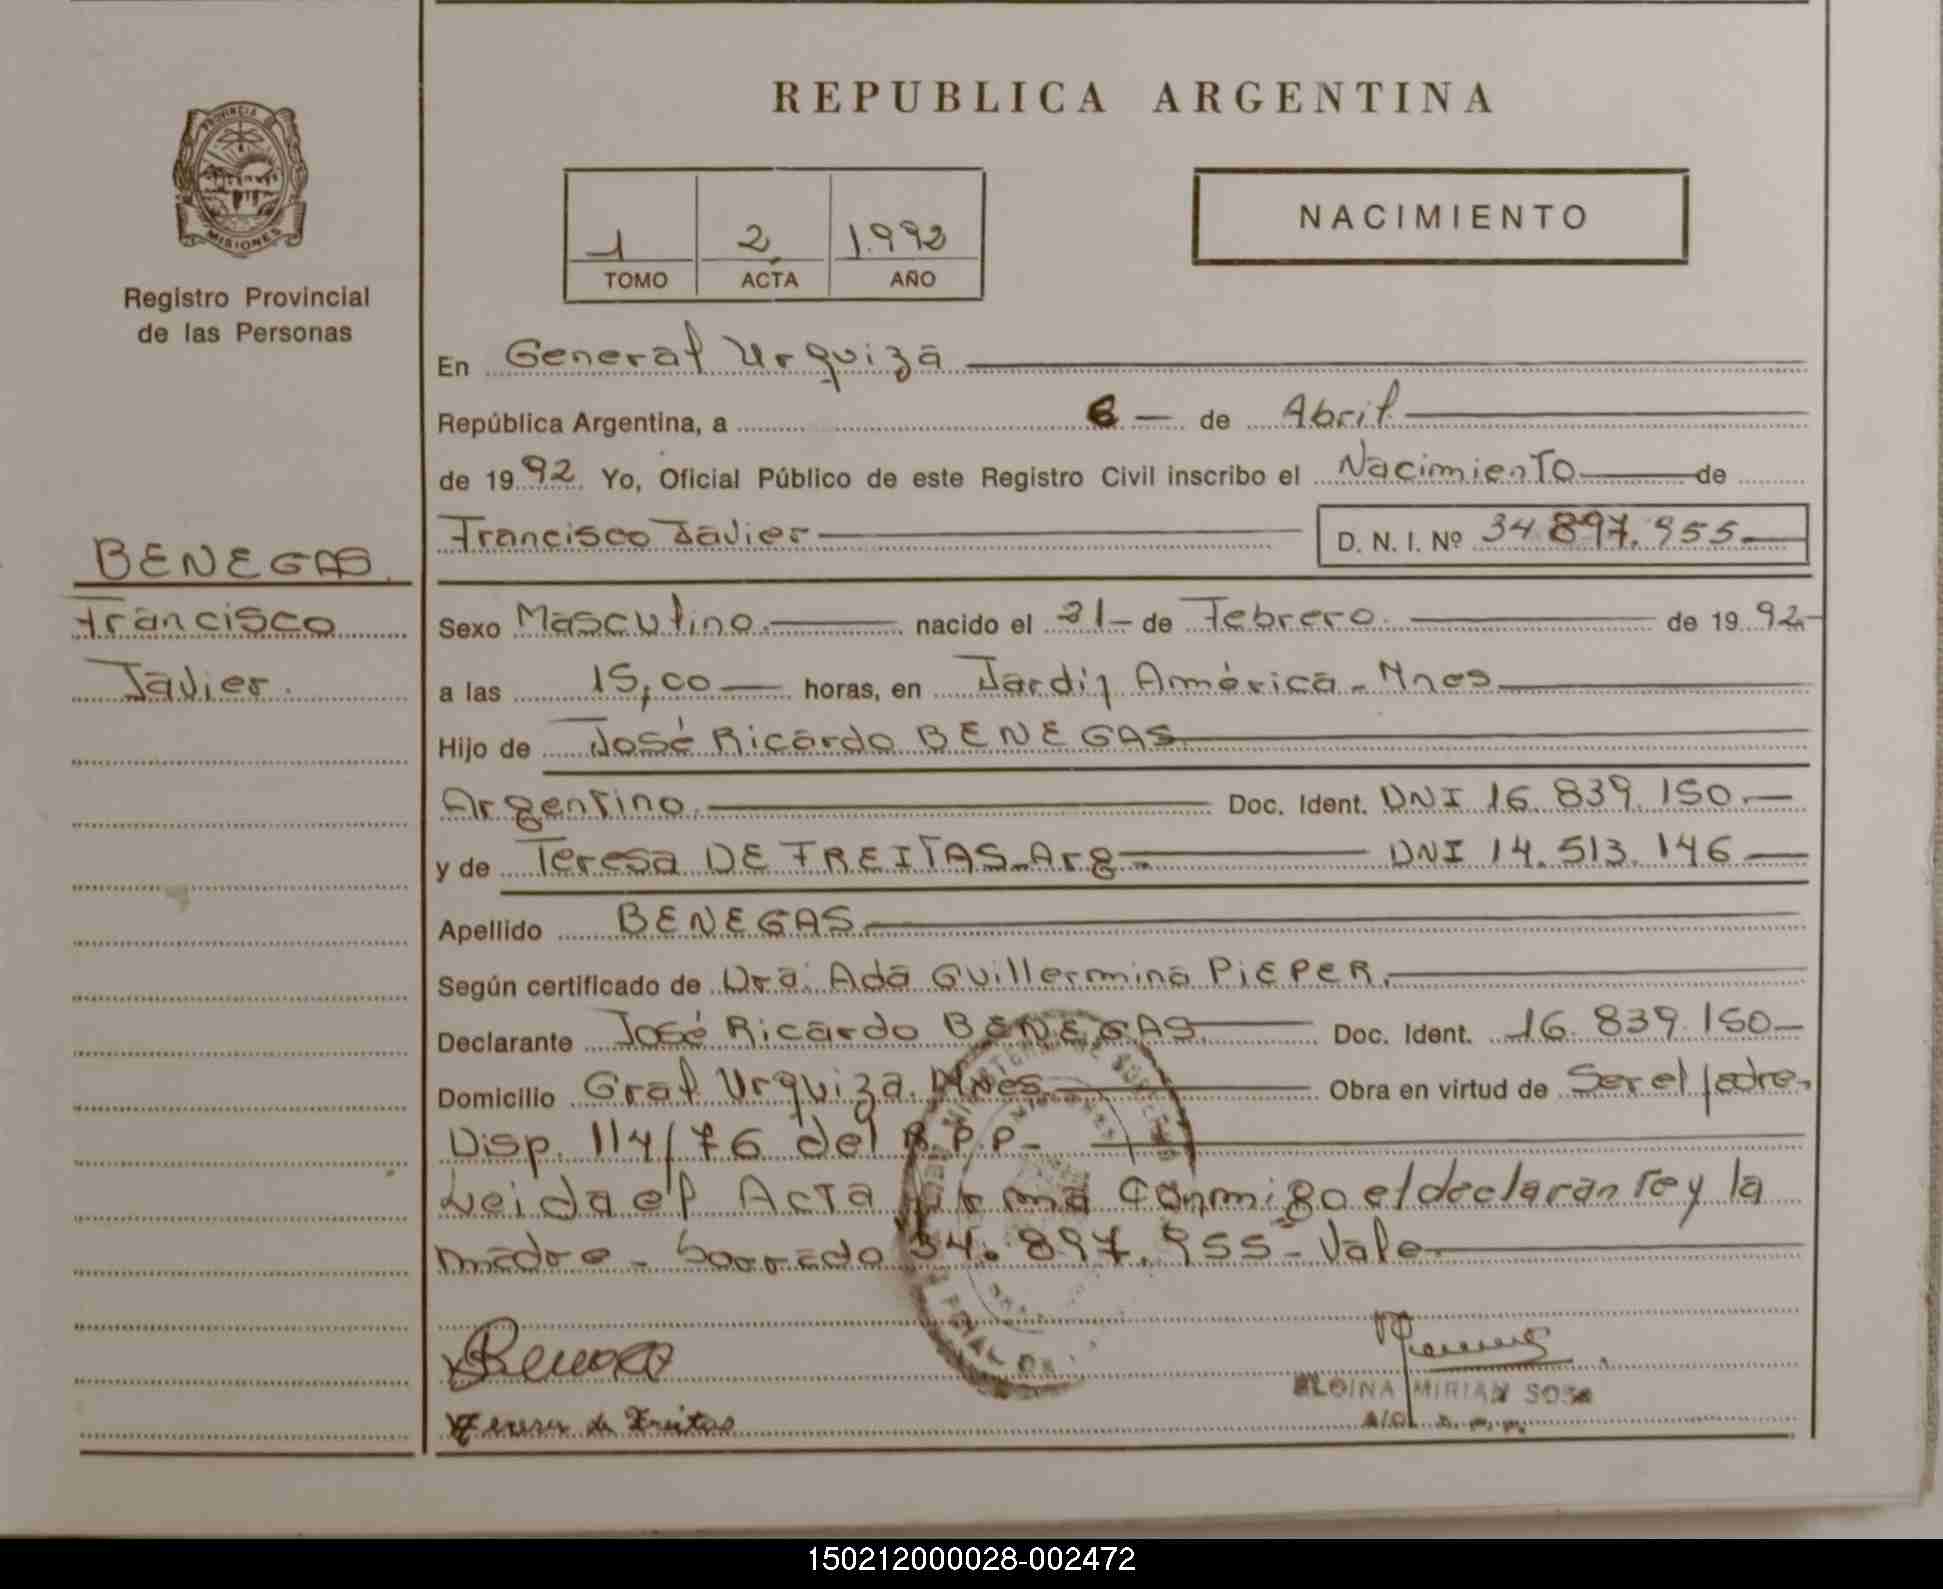 REPUBLICA ARGENTINA
PROVINCIA
MISIONES
Registro Provincial
de las Personas
1 2 1.992
TOMO ACTA AÑO
NACIMIENTO
En General Urquiza
República Argentina, a 6 — de Abril
de 1992 Yo, Oficial Público de este Registro Civil inscribo el Nacimiento de
Francisco Javier D. N. I. Nº 34 897.955
BENEGAS
Francisco
Javier
Sexo Masculino nacido el 21 de Febrero de 1992
a las 15,00 horas, en Jardín América - Mnes
Hijo de José Ricardo BENEGAS
Argentino. Doc. Ident. DNI 16.839.150.
y de Teresa DE FREITAS - Arg - DNI 14.513.146
Apellido BENEGAS
Según certificado de Dra. Ada Guillermina PIEPER.
Declarante José Ricardo BENEGAS Doc. Ident. 16.839.150
Domicilio Gral Urquiza. Mnes. Obra en virtud de Ser el padre.
Disp. 114/76 del R.P.P.
Leida el Acta firma conmigo el declarante y la
madre - borrado 34.897.955 - Vale
Teresa de Freitas
MIRIAN SOSA
150212000028-002472